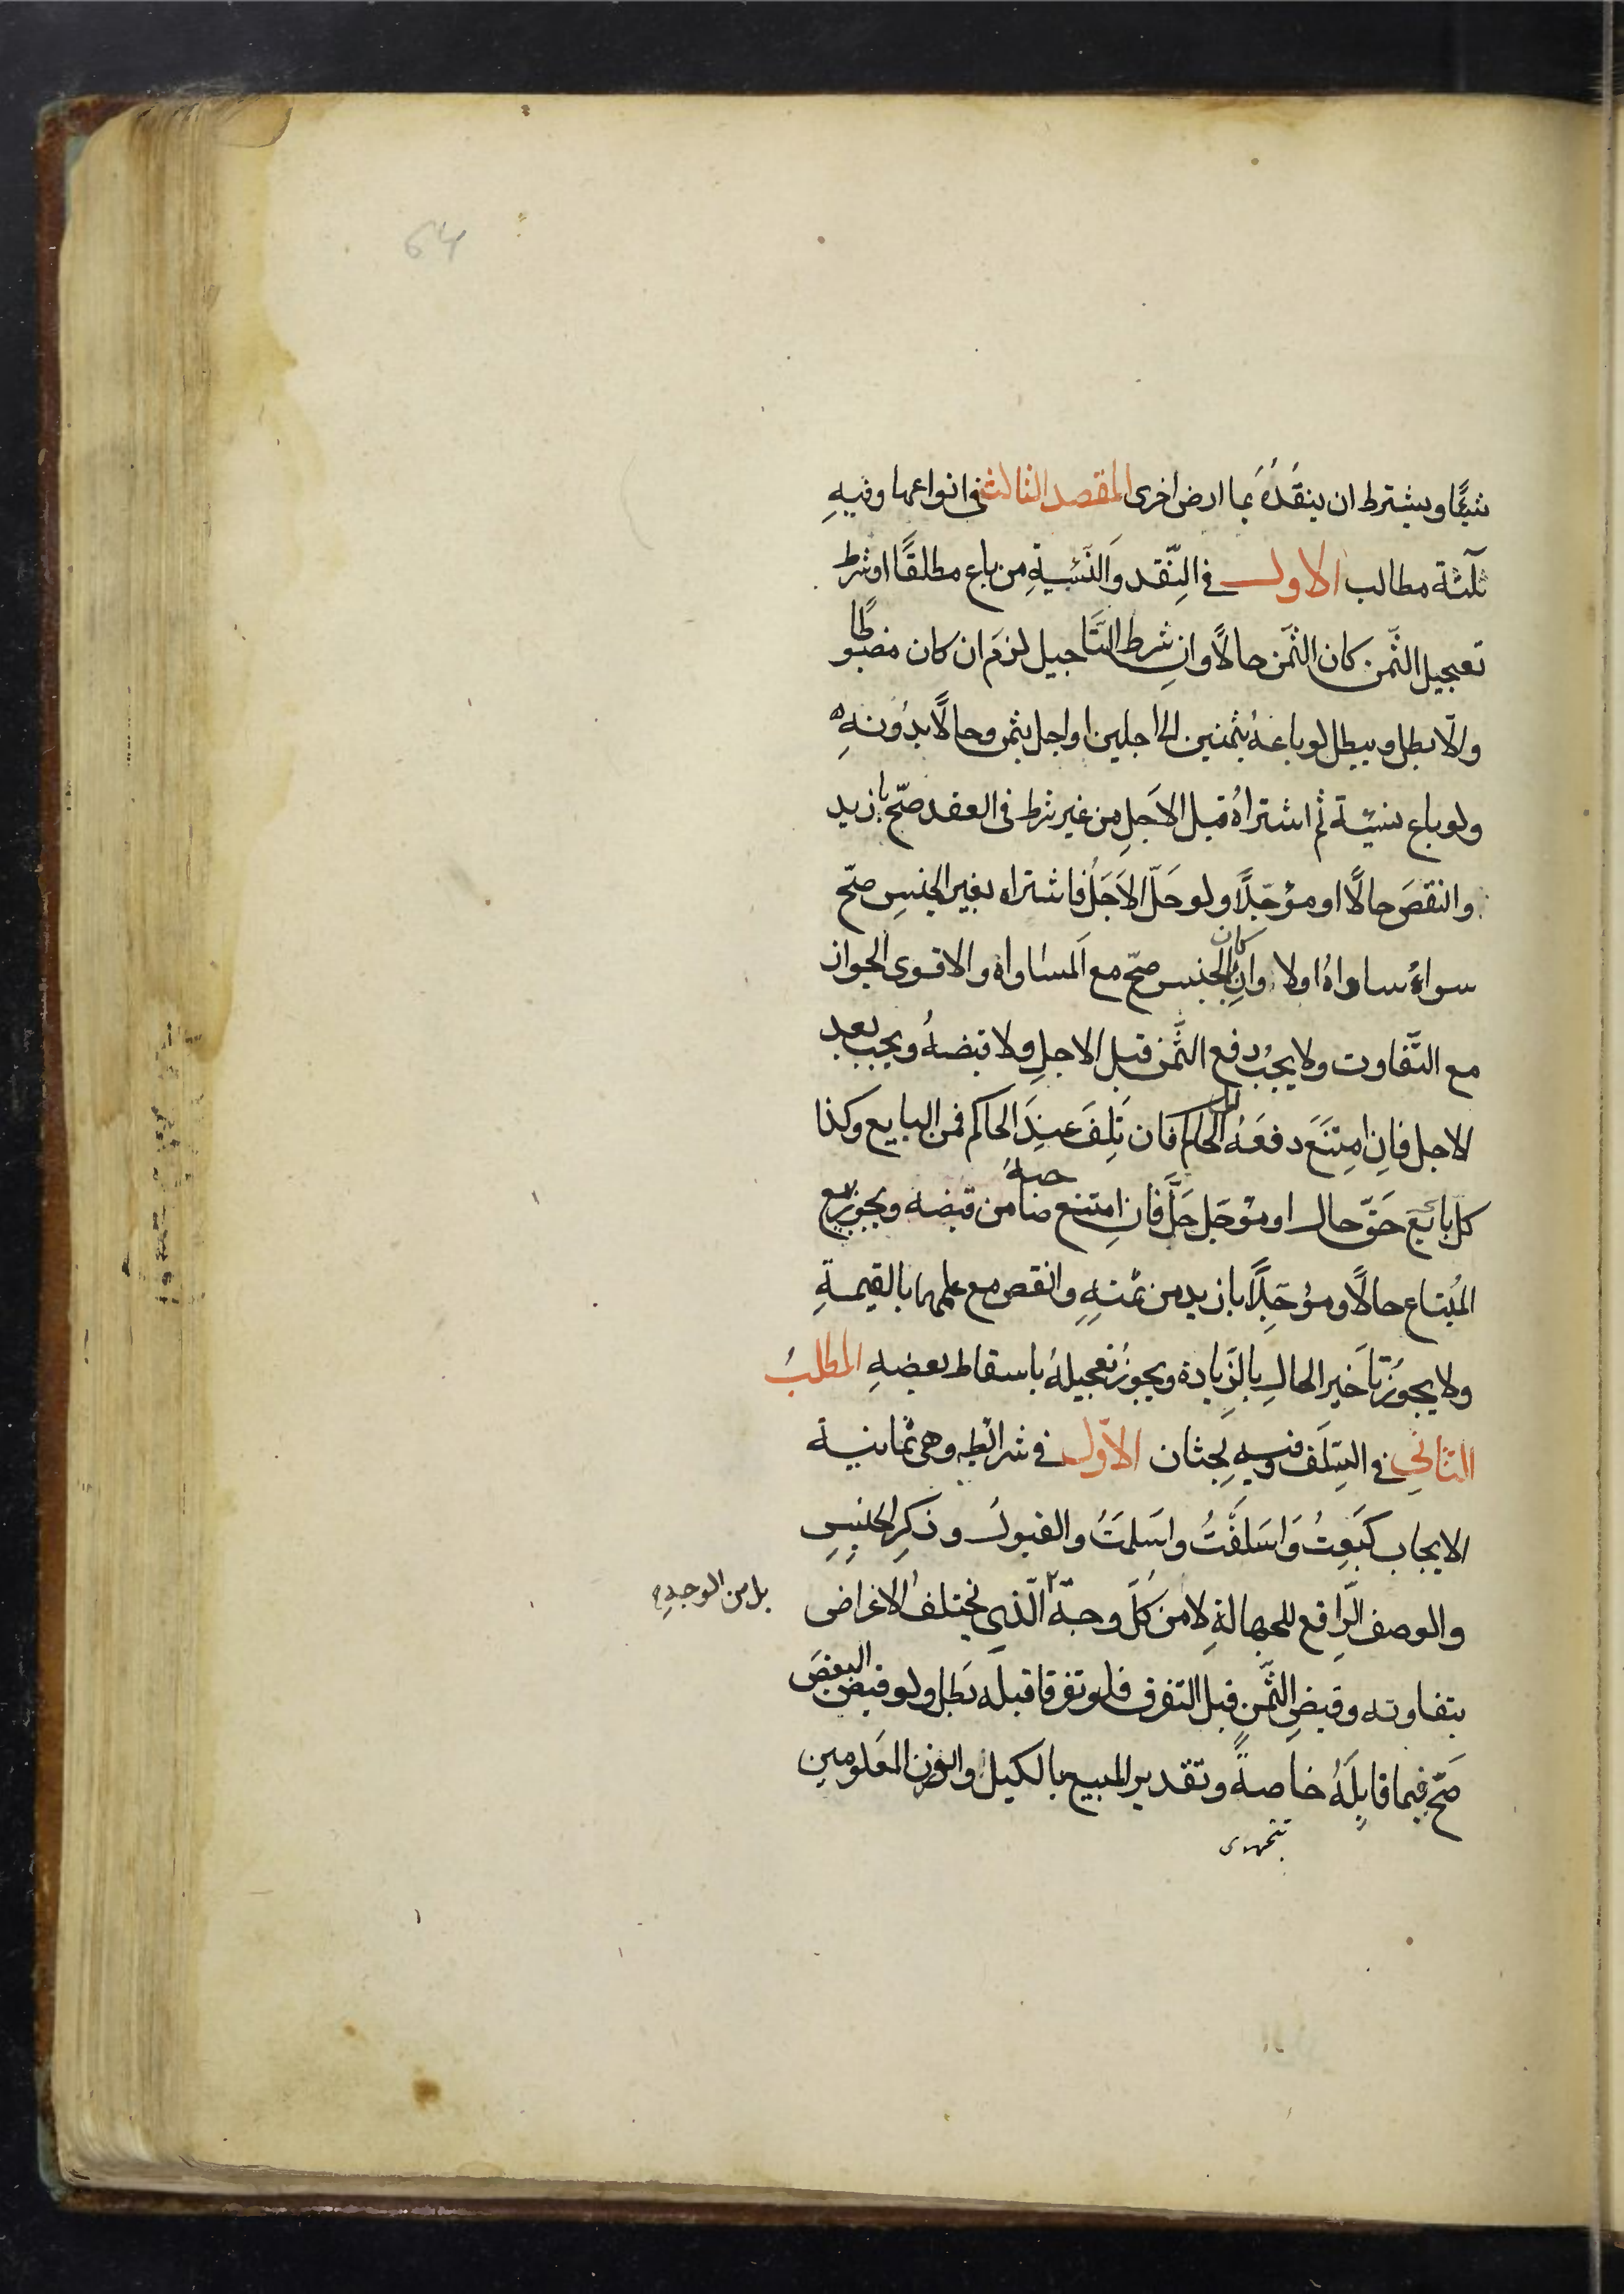 64
شيئًا ويشترط ان ينقُدَهُ بما ارض اخرى المقصد الثالث في انواعها وفيهِ
ثلثة مطالب الاول في النّقد وَالنّسيةِ من باع مطلقًا او شرط
تعجيل الثّمن كان الثّمن حالًا وانِ شرط التَّاجيل لزمَ ان كان مضبوطًا
والّا بطل ويبطل لو باعهُ بثمنين الى اجلين او اجل بثمن وحالًا بدُونهِ
ولو باع نسيّة ثم اشتراهُ قبل الاَجلِ من غير شرط فى العقد صحّ بازيد
وانقصَ حالًا او مؤجّلًا ولو حَلّ الاَجَلُ فاشتراه بغير الجنسِ صحّ
سواءٌ ساواهُ اولا وانِ كان بالجنس صحّ مع اَلمساواه والاقوى الجواز
مع التّفاوت ولا يجبُ دفع الثَّمن قبل الاجلِ ولا قبضهُ ويجب بعد
الاجل فانِ امتنَعَ دفعَهُ الى الحاكم فان تلِفَ عندَ الحاكم فمن البايع وكذا
كل بائع حَقّ حال او مؤجّل حَلَّ فانِ امتنع صاحبهُ من قبضه ويجوز بيع
المُبتاع حالًا ومؤجّلًا بازيد من ثمنهِ وانقص مع علمهما بالقيمةِ
ولا يجوُز تاَخير الحالِ بالزِّيادة ويجوزُ تعجيلهُ باسقاط بعضهِ المطلبُ
الثاني في السّلَف وفيهِ بحثان الاوّل في شرائطه وهى ثمانية
الايجاب كبَعتُ وَاسَلفتُ واسَلمتُ والقبول وذكرِ الجنسِ
والوصف الرّافع للجهالةِ لا من كلّ وجهٍ ٢ الّذي يختلفُ الاغراض
بل من الوجهِ
بتفاوته وقبضِ الثّمنِ قبل التفرق فلو تفرقا قبله بَطل ولو قبض البعضَ
صَحّ فيما قابلَهُ خاصةً وتقدير المبيع بالكيل او الوزن المعَلومين